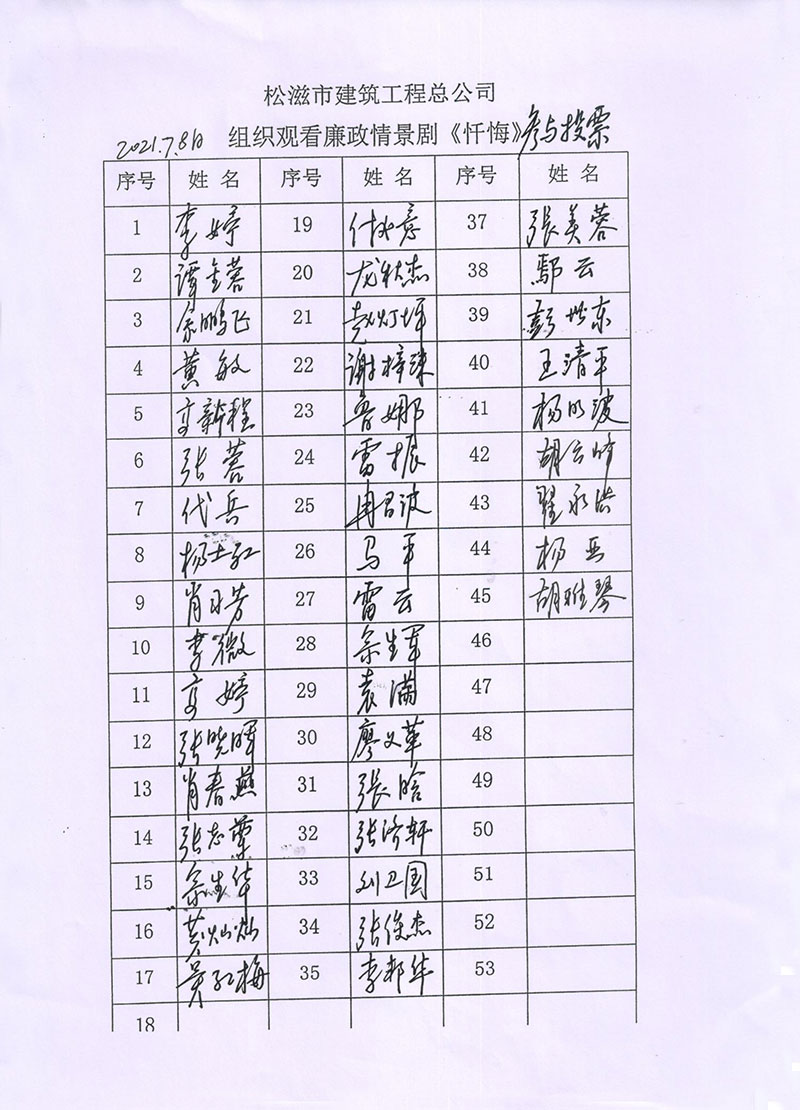 松滋市建筑工程总公司
2021.7.8日 组织观看廉政情景剧《忏悔》参与投票
序号 姓 名 序号 姓 名 序号 姓 名
1 李婷 19 37 張美蓉
2 谭金蓉 20 龙秋杰 38 鄢云
3 余鹏飞 21 39 彭世东
4 黄敏 22 谢梓珠 40 王清平
5 23 鲁娜 41 杨明波
6 张蓉 24 雷振 42 胡云峰
7 代兵 25 冉君波 43 翟永洪
8 杨士红 26 马平 44 杨亚
9 肖日芳 27 雷云 45 胡雅琴
10 李微 28 余生军 46
11 29 袁满 47
12 张晓晖 30 廖义革 48
13 肖春燕 31 張晗 49
14 张志蒙 32 张济轩 50
15 余生华 33 刘卫国 51
16 黄灿灿 34 张俊杰 52
17 吴红梅 35 李邦华 53
18